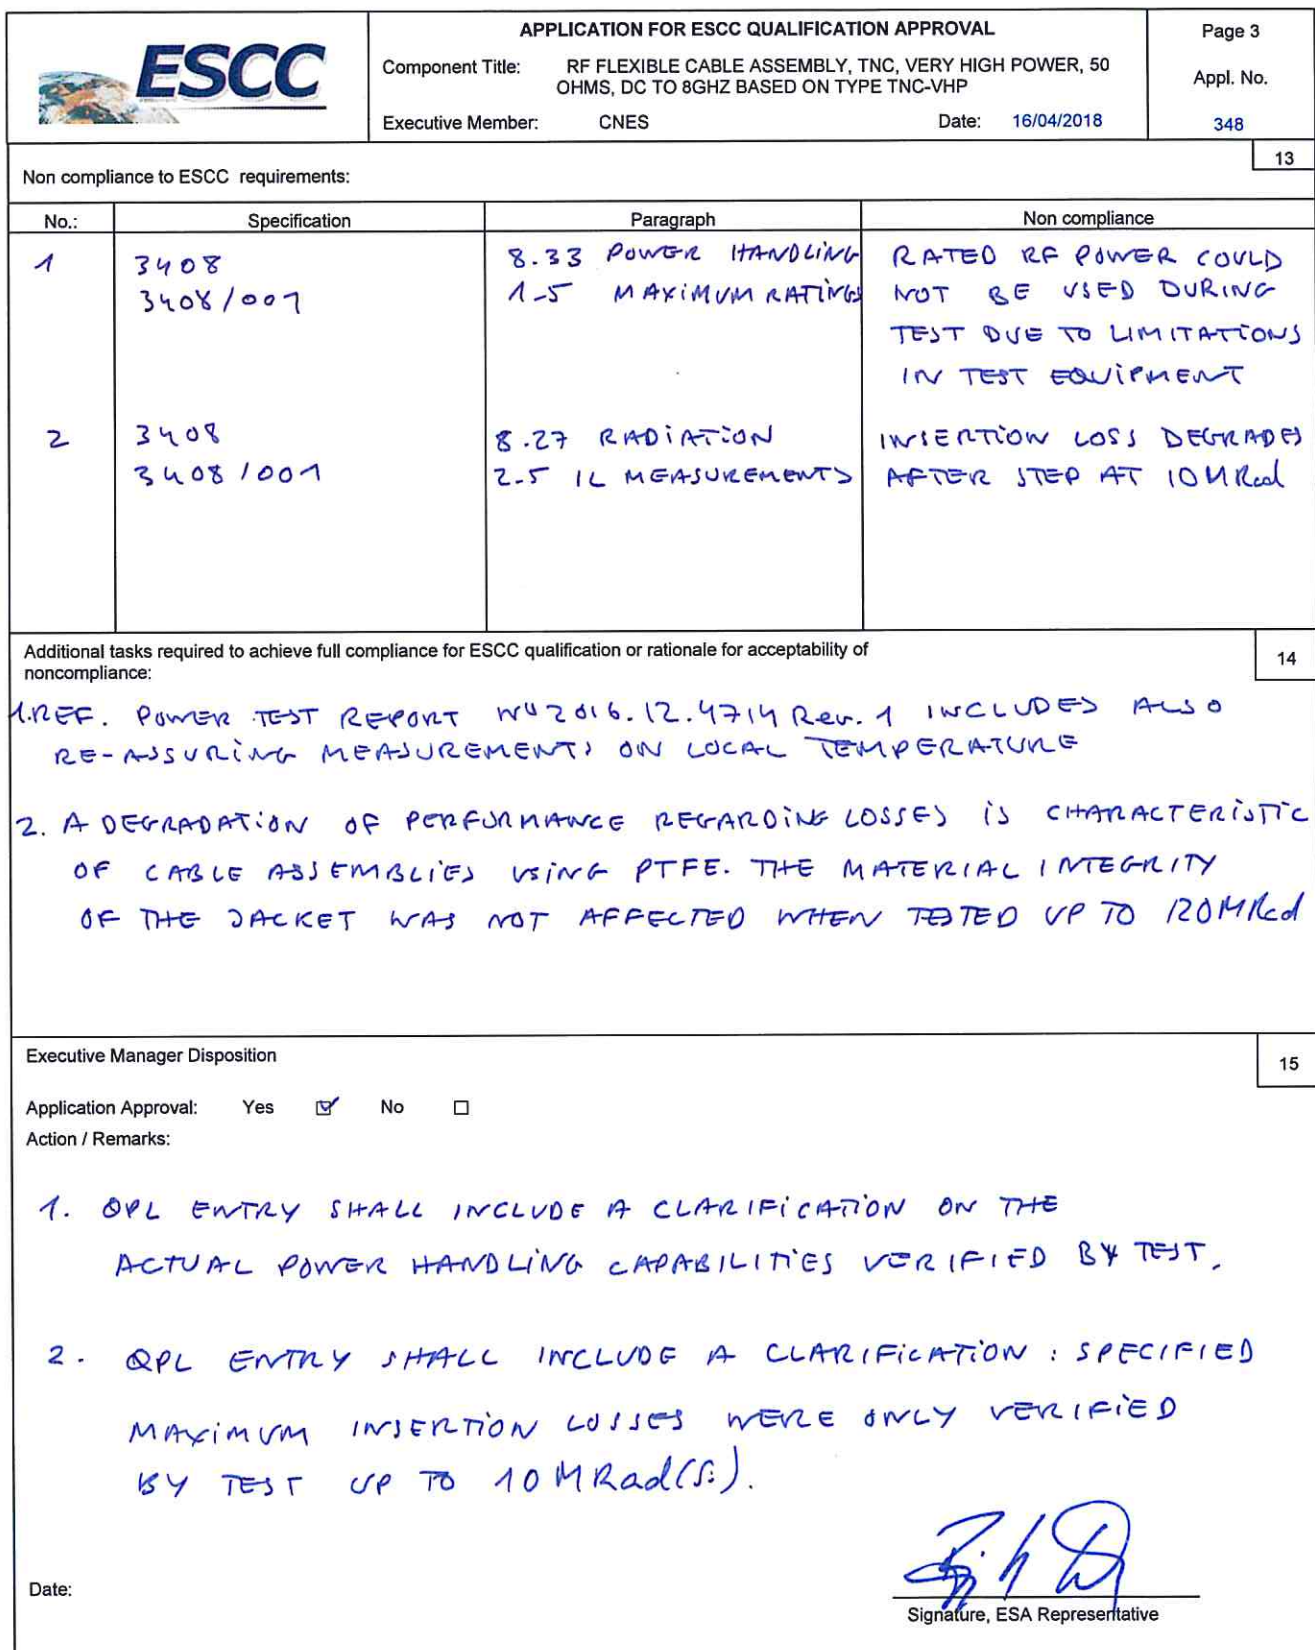 ESCC
APPLICATION FOR ESCC QUALIFICATION APPROVAL
Component Title: RF FLEXIBLE CABLE ASSEMBLY, TNC, VERY HIGH POWER, 50
OHMS, DC TO 8GHZ BASED ON TYPE TNC-VHP
Executive Member: CNES Date: 16/04/2018
Page 3
Appl. No.
348
13
Non compliance to ESCC requirements:
No.: Specification Paragraph Non compliance
1 3408 8.33 POWER HANDLING RATED RF POWER COULD
3408/001 1-5 MAXIMUM RATINGS NOT BE USED DURING
TEST DUE TO LIMITATIONS
IN TEST EQUIPMENT
2 3408 8.27 RADIATION INSERTION LOSS DEGRADES
3408/001 2-5 IL MEASUREMENTS AFTER STEP AT 10MRad
Additional tasks required to achieve full compliance for ESCC qualification or rationale for acceptability of
noncompliance:
14
1.REF. POWER TEST REPORT WU2016.12.4714 Rev. 1 INCLUDES ALSO
RE-ASSURING MEASUREMENTS ON LOCAL TEMPERATURE
2. A DEGRADATION OF PERFORMANCE REGARDING LOSSES IS CHARACTERISTIC
OF CABLE ASSEMBLIES USING PTFE. THE MATERIAL INTEGRITY
OF THE JACKET WAS NOT AFFECTED WHEN TESTED UP TO 120MRad
Executive Manager Disposition
15
Application Approval: Yes No
Action / Remarks:
1. QPL ENTRY SHALL INCLUDE A CLARIFICATION ON THE
ACTUAL POWER HANDLING CAPABILITIES VERIFIED BY TEST.
2. QPL ENTRY SHALL INCLUDE A CLARIFICATION : SPECIFIED
MAXIMUM INSERTION LOSSES WERE ONLY VERIFIED
BY TEST UP TO 10 MRad(Si).
Date:
Signature, ESA Representative